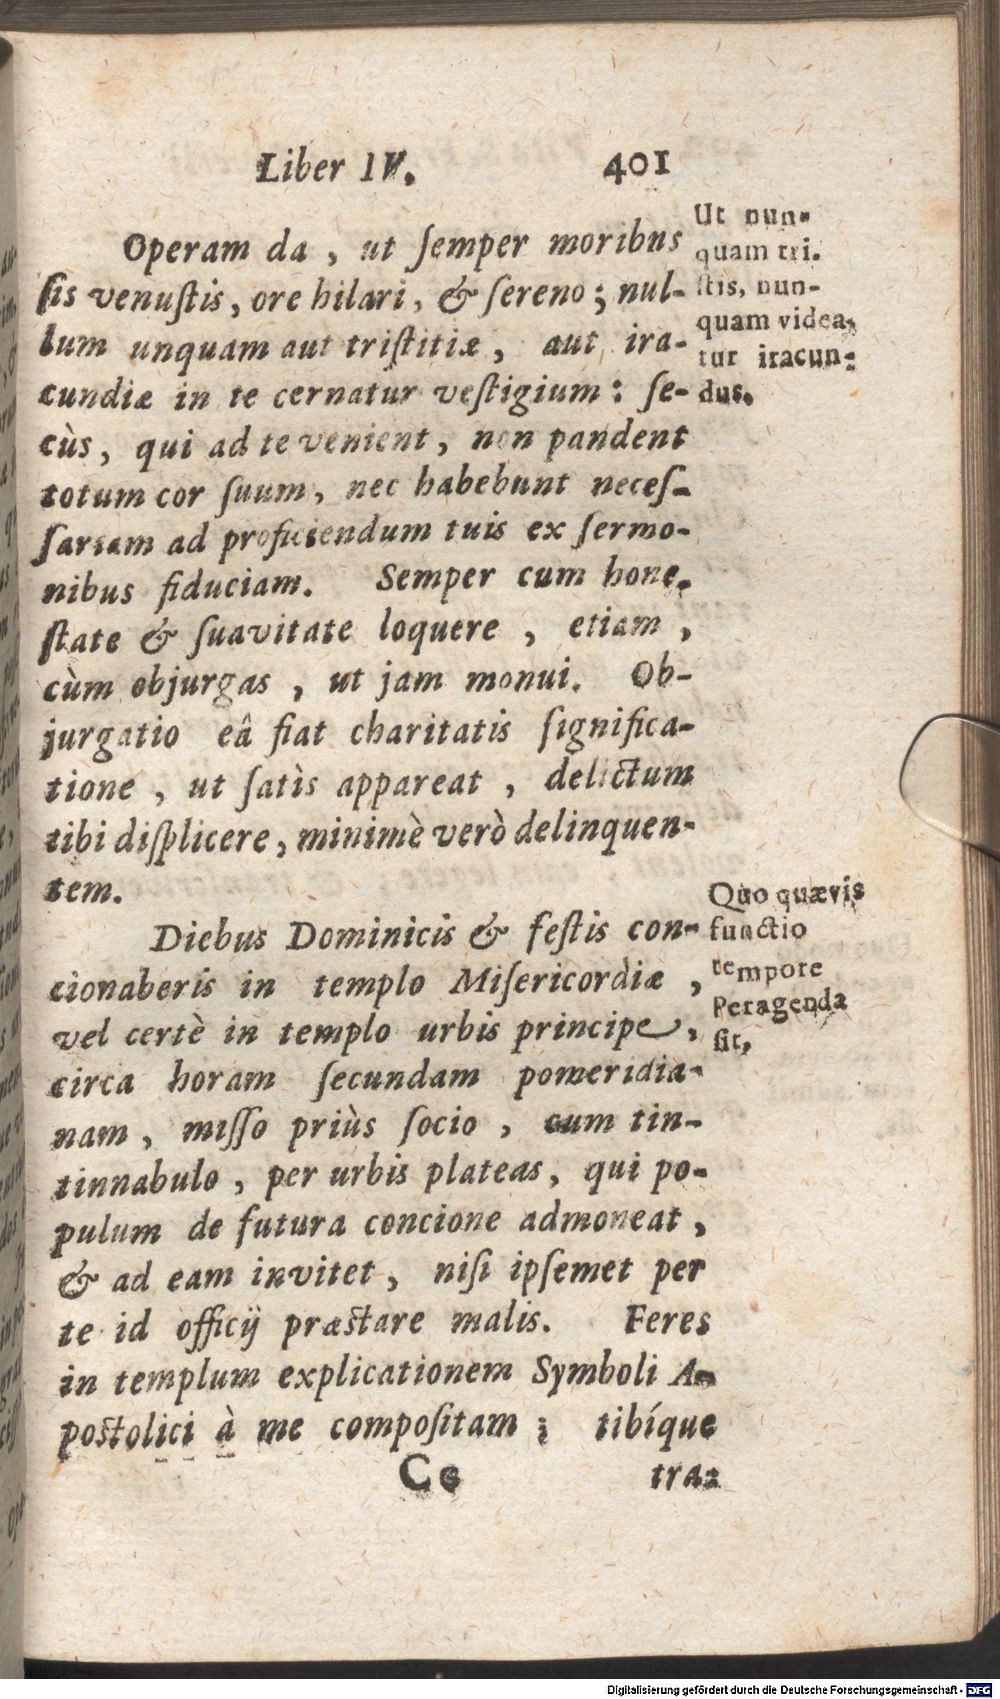 Liber IV. 401
Operam da, ut ſemper moribus
ſis venuſtis, ore hilari, & ſereno; nul-
lum unquam aut triſtitiæ, aut ira-
cundiæ in te cernatur veſtigium: ſe-
cùs, qui ad te venient, non pandent
totum cor ſuum, nec habebunt neceſ-
ſariam ad proficiendum tuis ex ſermo-
nibus fiduciam. Semper cum hone-
ſtate & ſuavitate loquere, etiam,
cùm objurgas, ut jam monui. Ob-
jurgatio eâ fiat charitatis ſignifica-
tione, ut ſatìs appareat, delictum
tibi diſplicere, minimè verò delinquen-
tem.
Ut nun-
quam tri-
ſtis, nun-
quam videa-
tur iracun-
dus.
Diebus Dominicis & feſtis con-
cionaberis in templo Miſericordiæ,
vel certè in templo urbis principe,
circa horam ſecundam pomeridia-
nam, miſſo priùs ſocio, cum tin-
tinnabulo, per urbis plateas, qui po-
pulum de futura concione admoneat,
& ad eam invitet, niſi ipſemet per
te id officij præſtare malis. Feres
in templum explicationem Symboli A-
poſtolici à me compoſitam; tibíque
Quo quævis
functio
tempore
peragenda
ſit.
Cc tra-
Digitalisierung gefördert durch die Deutsche Forschungsgemeinschaft - DFG